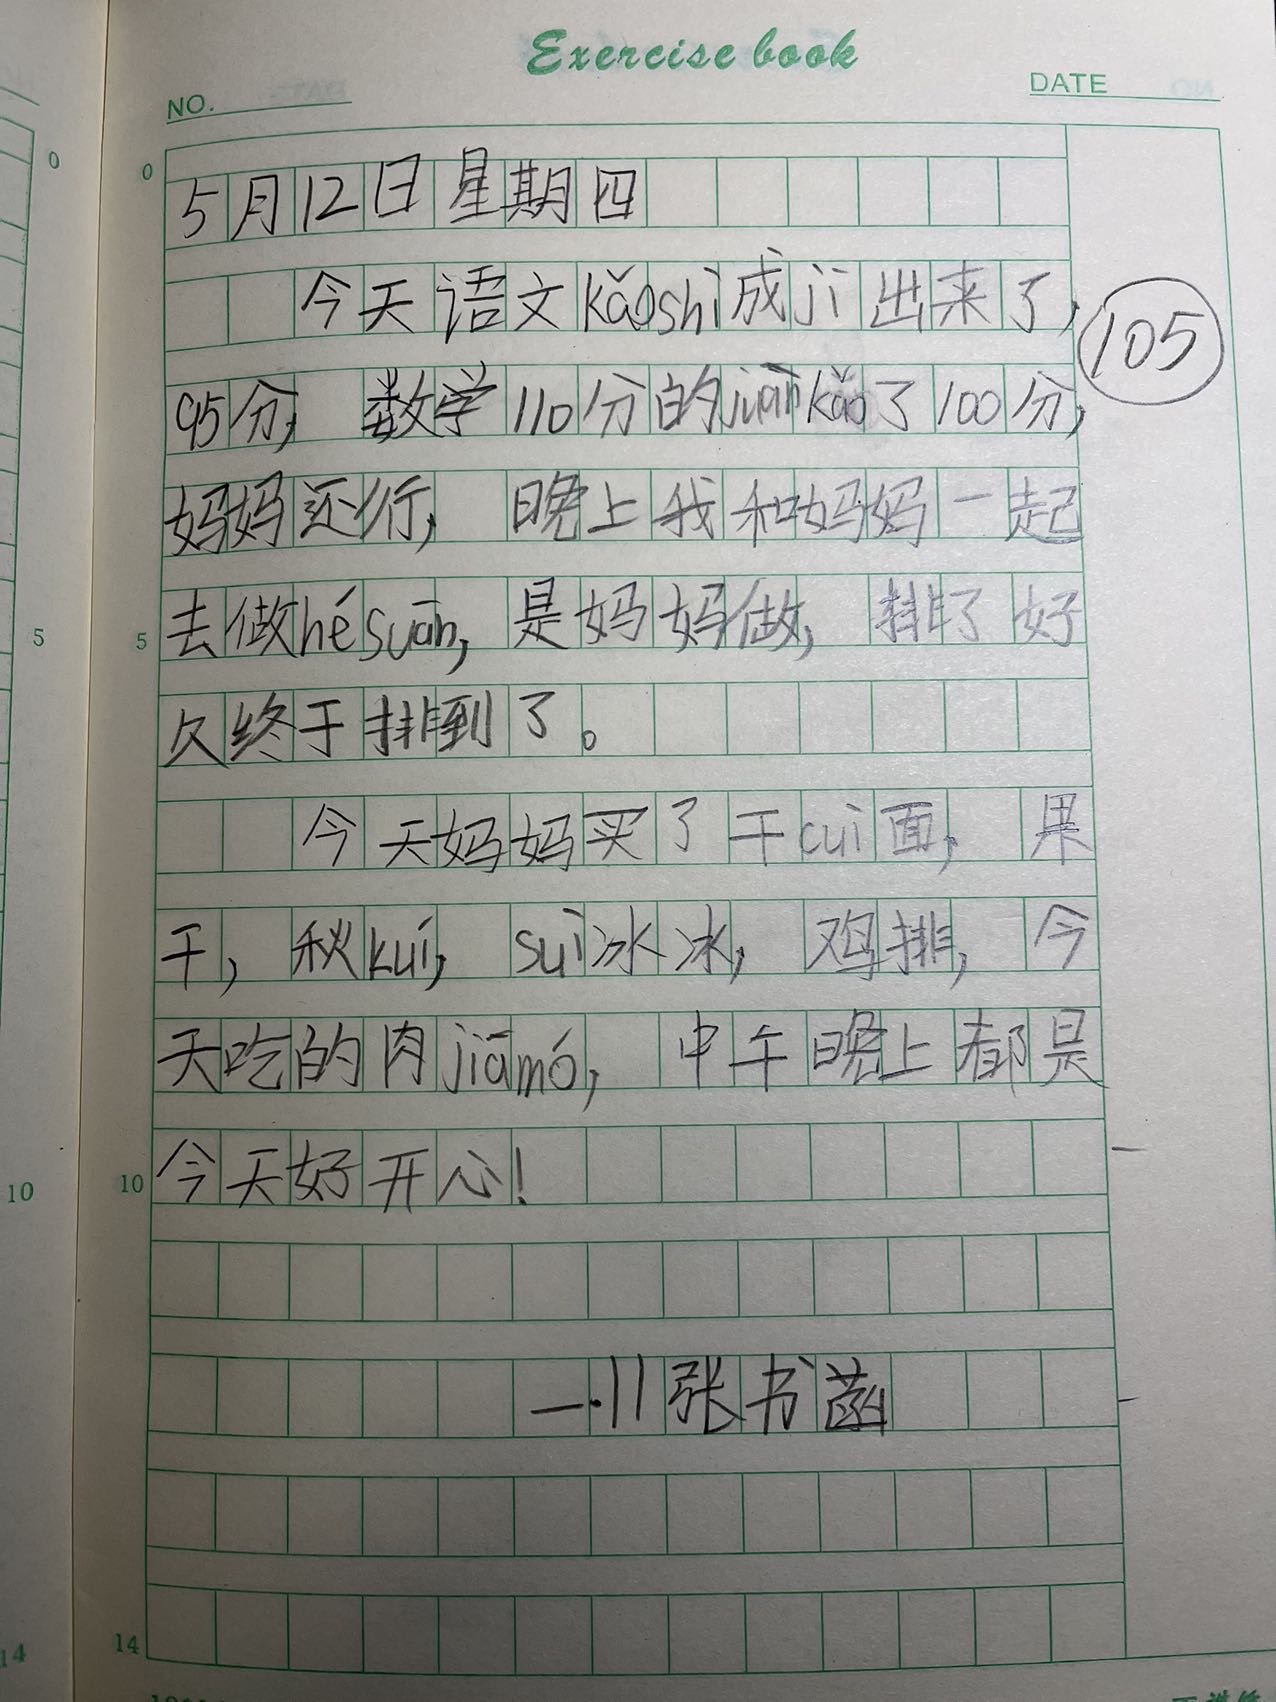 Exercise book
NO.
DATE
5月12日星期四
今天语文kǎoshì成jì出来了,
105
95分, 数学110分的juànkǎo了100分,
妈妈还行, 晚上我和妈妈一起
去做hésuān, 是妈妈做, 排了好
久终于排到了。
今天妈妈买了干cuì面, 果
干, 秋kuí, suì冰冰, 鸡排, 今
天吃的肉jiāmó, 中午晚上都是
今天好开心!
一.11张书菡
0
5
10
14
0
5
10
14